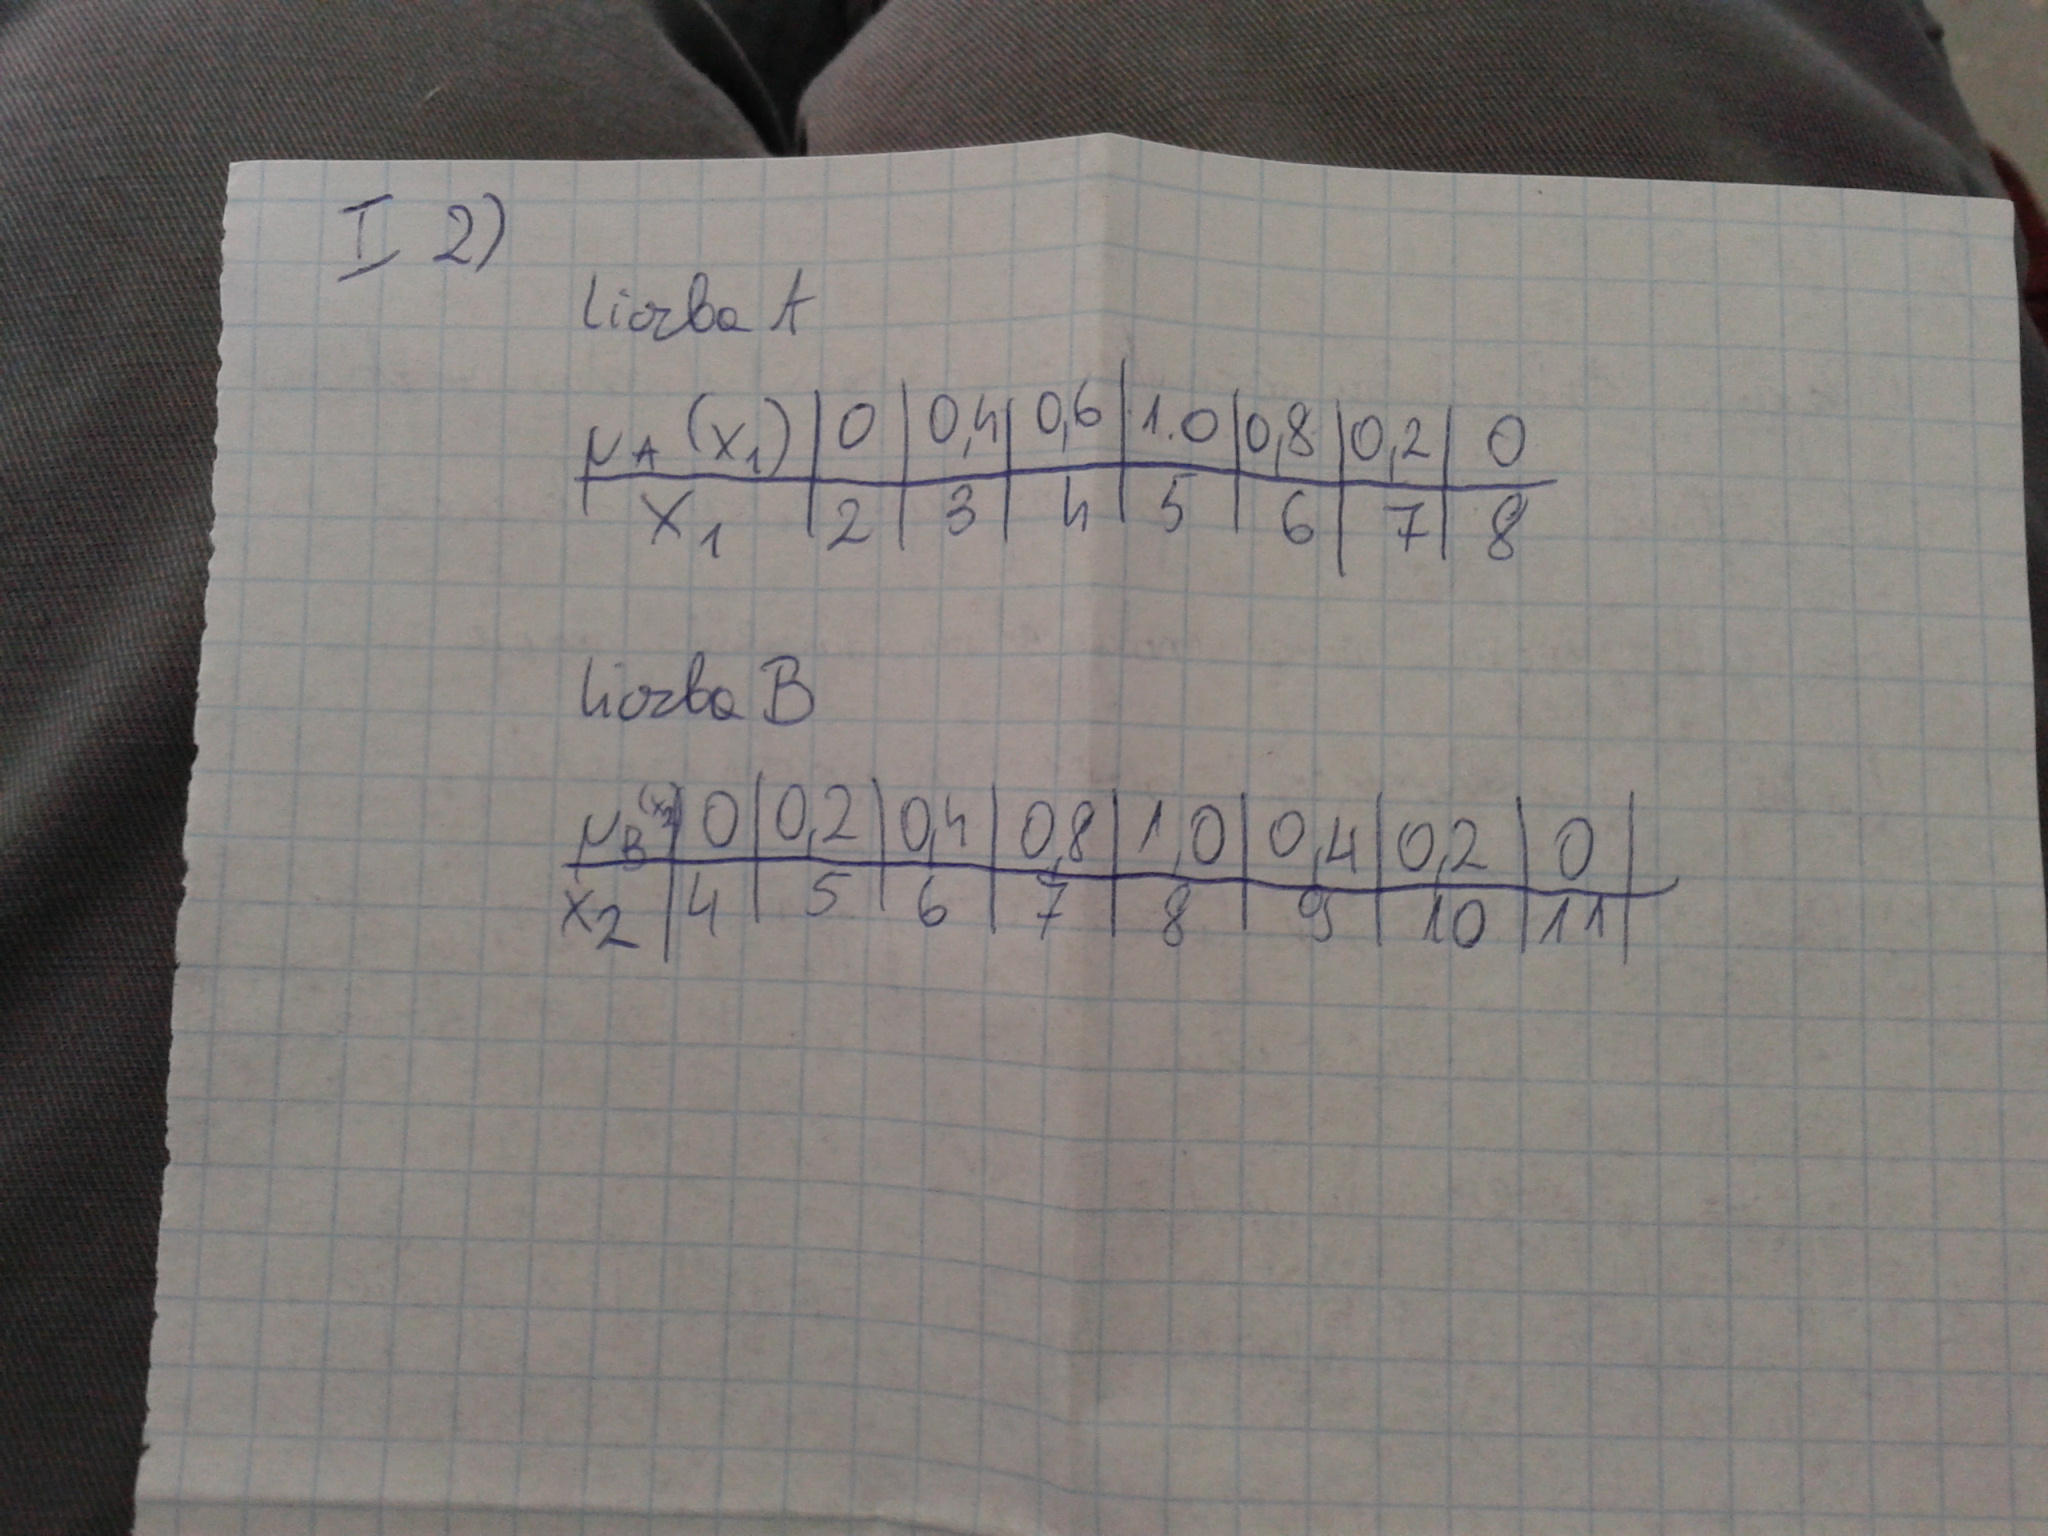 I 2)
Liczba A
μA (x1) | 0 | 0,4 | 0,6 | 1.0 | 0,8 | 0,2 | 0
x1 | 2 | 3 | 4 | 5 | 6 | 7 | 8
Liczba B
μB (x2) | 0 | 0,2 | 0,4 | 0,8 | 1,0 | 0,4 | 0,2 | 0 |
x2 | 4 | 5 | 6 | 7 | 8 | 9 | 10 | 11 |